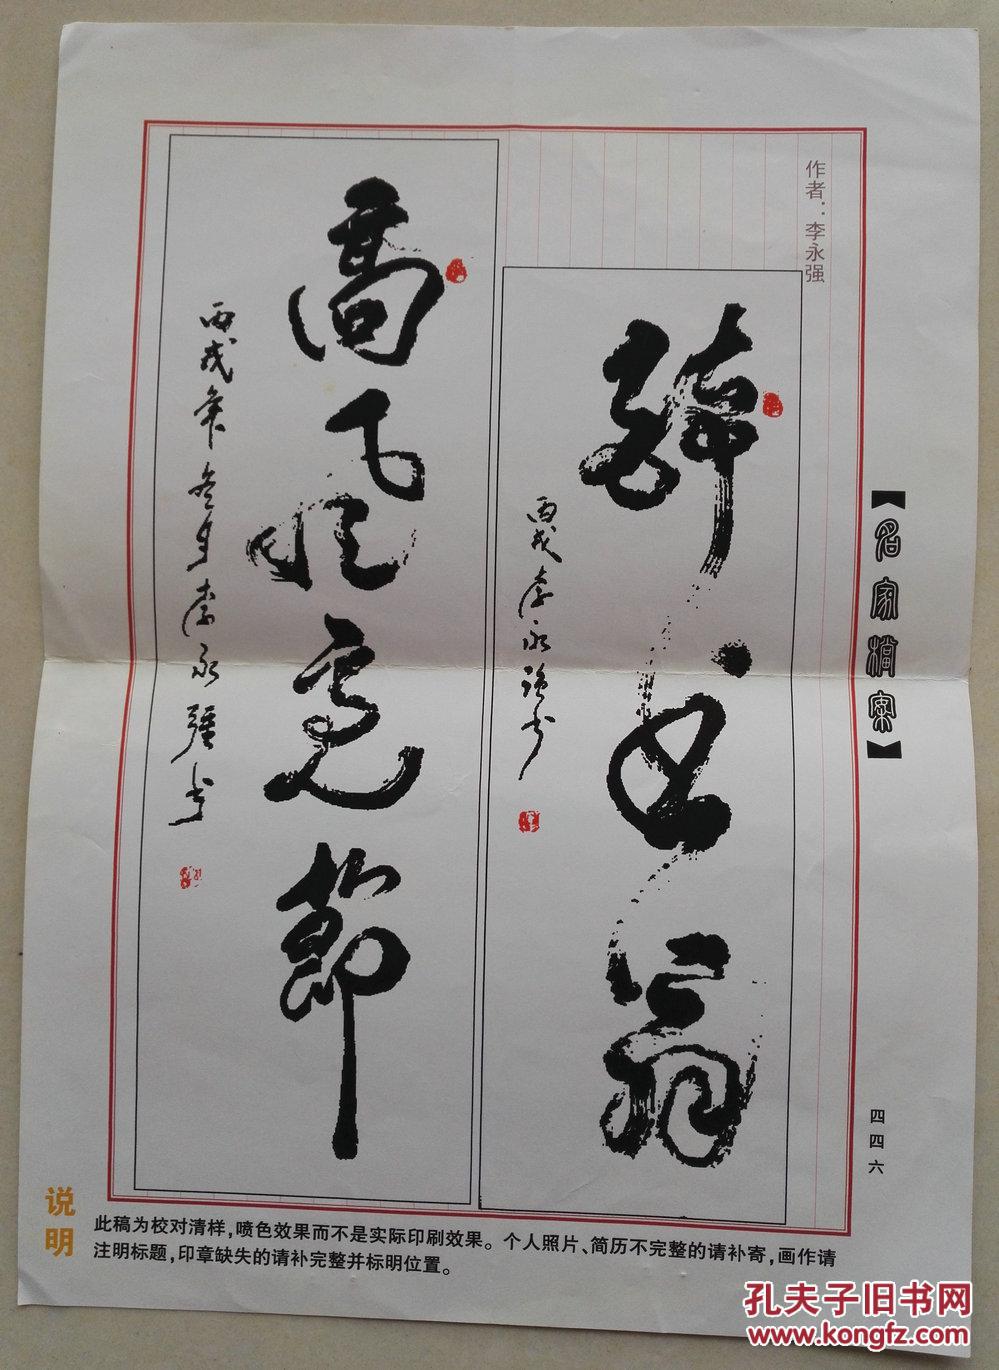 作者：李永强
【名家檔案】
四四六
丙戌李永强书
高风亮節
丙戌年冬月李永强书
说明
此稿为校对清样，喷色效果而不是实际印刷效果。个人照片、简历不完整的请补寄，画作请
注明标题，印章缺失的请补完整并标明位置。
孔夫子旧书网
www.kongfz.com